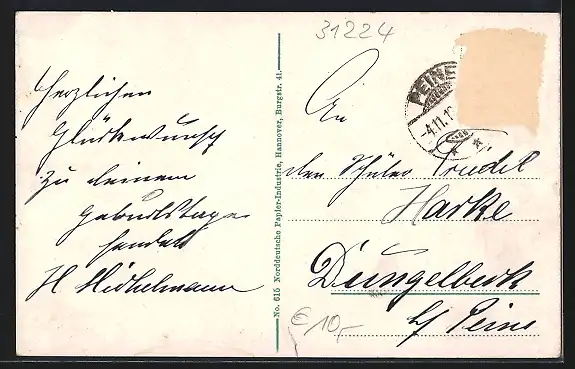 31224
Herzlichen
Glückwunsch
zu deinem
Geburtstage
sendet
H Michelmann
No. 615 Norddeutsche Papier-Industrie, Hannover, Burgstr. 41.
PEINE
-4.11.1
An
den Schüler Friedel
Harke
Dungelbeck
b/ Peine
€ 10,-